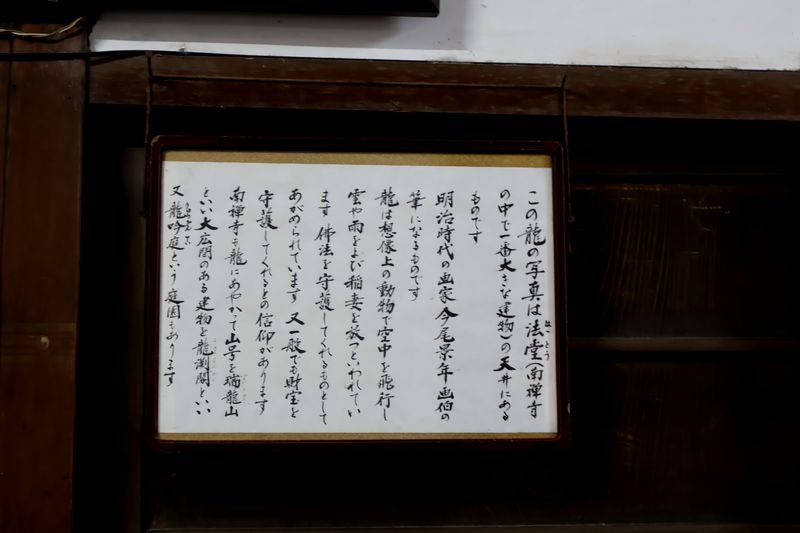 この龍の写真は法堂(南禅寺
はっとう
の中で一番大きな建物)の天井にある
ものです
明治時代の画家今尾景年画伯の
筆になるものです
龍は想像上の動物で空中を飛行し
雲や雨をよび稲妻を放つといわれてい
ます 佛法を守護してくれるものとして
あがめられています 又一般でも財宝を
守護してくれるとの信仰があります
南禅寺も龍にあやかって山号を瑞龍山
といい大広間のある建物を龍渕閣といい
又龍吟庭という庭園もあります